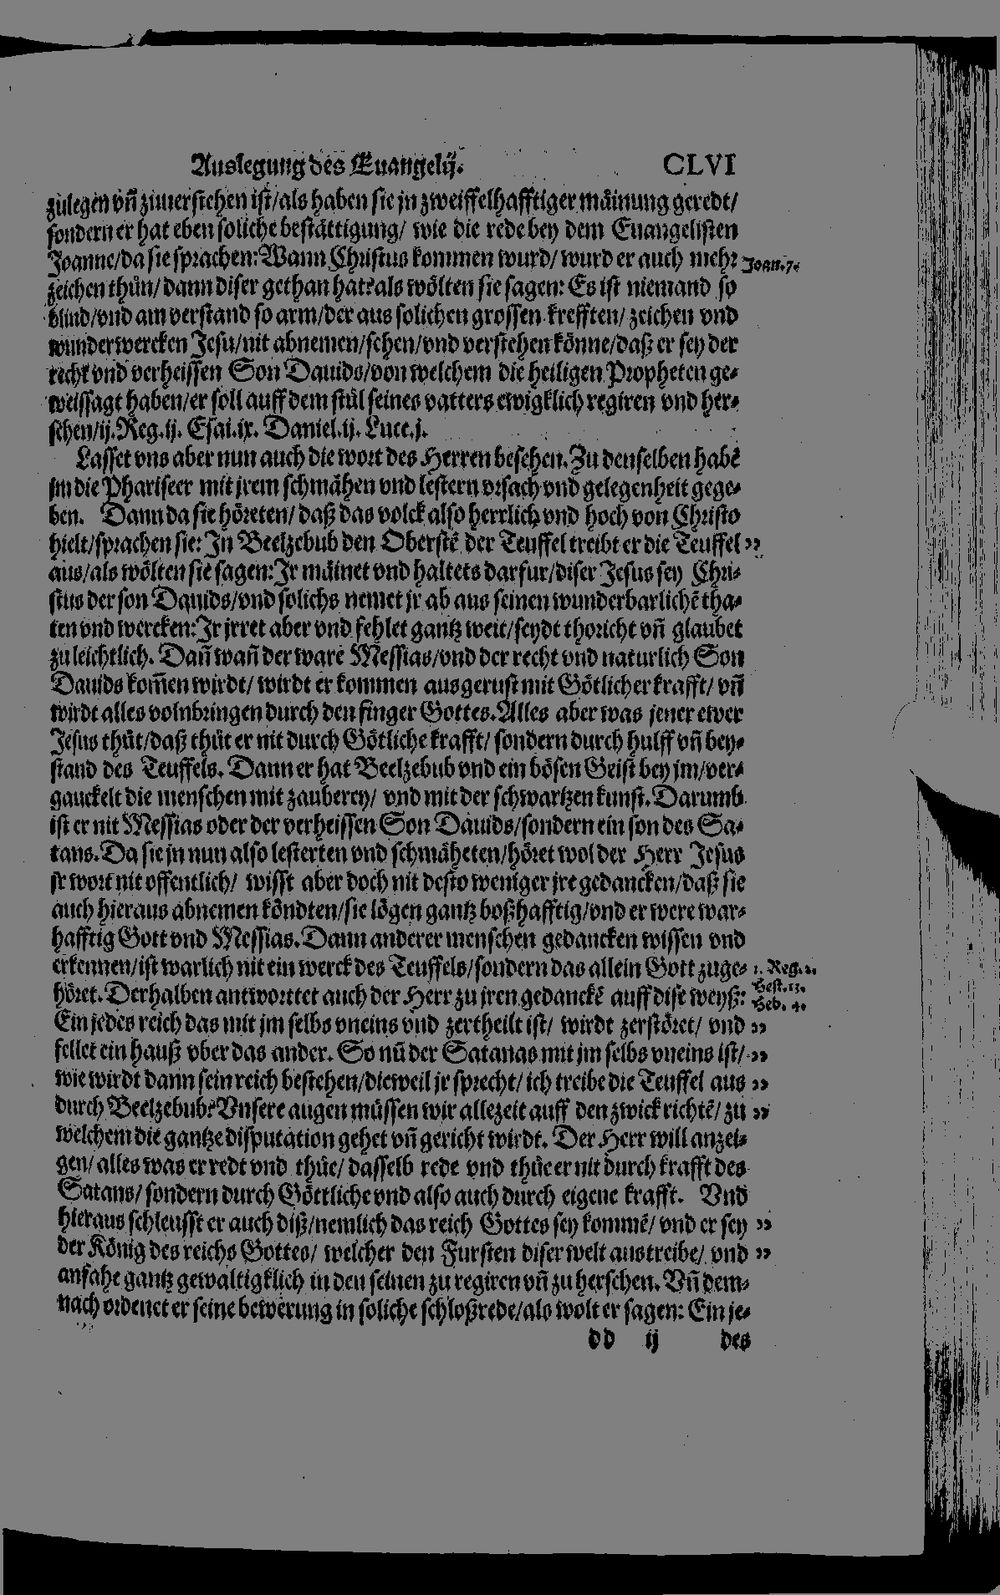 Auslegung des Euangelij. CLVI
zulegen vñ zuuerstehen ist/als haben sie jn zweiffelhafftiger mäinung geredt/
sondern er hat eben soliche bestättigung/ wie die rede bey dem Euangelisten
Joanne/da sie sprachen: Wann Christus kommen wurd/ wurd er auch mehr Joan.7.
zeichen thůn/ dann diser gethan hat? als wölten sie sagen: Es ist niemand so
blind/vnd am verstand so arm/der aus solichen grossen krefften/ zeichen vnd
wunderwercken Jesu/nit abnemen/sehen/vnd verstehen könne/daß er sey der
recht vnd verheissen Son Dauids/von welchem die heiligen Propheten ge-
weissagt haben/er soll auff dem stůl seines vatters ewigklich regiren vnd her-
schen/ij.Reg.ij. Esai.ix. Daniel.ij. Luce.j.
Lasset vns aber nun auch die wort des Herren besehen. Zu denselben habẽ
jm die Phariseer mit jrem schmähen vnd lestern vrsach vnd gelegenheit gege-
ben. Dann da sie höreten/ daß das volck also herrlich vnd hoch von Christo
hielt/sprachen sie: In Beelzebub den Oberstẽ der Teuffel treibt er die Teuffel „
aus/als wölten sie sagen: Jr mäinet vnd haltets darfur/diser Jesus sey Chri-
stus der son Dauids/vnd solichs nemet jr ab aus seinen wunderbarlichẽ tha-
ten vnd wercken: Jr jrret aber vnd fehlet gantz weit/seydt thoricht vñ glaubet
zu leichtlich. Dañ wañ der ware Messias/vnd der recht vnd naturlich Son
Dauids kom̃en wirdt/ wirdt er kommen ausgerust mit Götlicher krafft/ vñ
wirdt alles volnbringen durch den finger Gottes. Alles aber was jener ewer
Jesus thůt/daß thůt er nit durch Götliche krafft/ sondern durch hulff vñ bey-
stand des Teuffels. Dann er hat Beelzebub vnd ein bösen Geist bey jm/ver-
gauckelt die menschen mit zauberey/ vnd mit der schwartzen kunst. Darumb
ist er nit Messias oder der verheissen Son Dauids/sondern ein son des Sa-
tans. Da sie jn nun also lesterten vnd schmäheten/höret wol der Herr Jesus
jr wort nit offentlich/ wisst aber doch nit desto weniger jre gedancken/daß sie
auch hieraus abnemen köndten/sie lögen gantz boßhafftig/vnd er were war-
hafftig Gott vnd Messias. Dann anderer menschen gedancken wissen vnd
erkennen/ist warlich nit ein werck des Teuffels/sondern das allein Gott zuge- 1. Reg.
höret. Derhalben antworttet auch der Herr zu jren gedanckẽ auff dise weyß: Heb. 4.
Ein jedes reich das mit jm selbs vneins vnd zertheilt ist/ wirdt zerstöret/ vnd „
fellet ein hauß vber das ander. So nũ der Satanas mit jm selbs vneins ist/ „
wie wirdt dann sein reich bestehen/dieweil jr sprecht/ ich treibe die Teuffel aus „
durch Beelzebub? Vnsere augen müssen wir allezeit auff den zwick richtẽ/ zu „
welchem die gantze disputation gehet vñ gericht wirdt. Der Herr will anzei-
gen/ alles was er redt vnd thůe/ dasselb rede vnd thůe er nit durch krafft des
Satans/ sondern durch Göttliche vnd also auch durch eigene krafft. Vnd
hieraus schleusst er auch diß/nemlich das reich Gottes sey kommẽ/ vnd er sey „
der König des reichs Gottes/ welcher den Fursten diser welt austreibe/ vnd „
anfahe gantz gewaltigklich in den seinen zu regiren vñ zu herschen. Vñ dem-
nach ordenet er seine bewerung in soliche schloßrede/als wolt er sagen: Ein je-
dd ij des